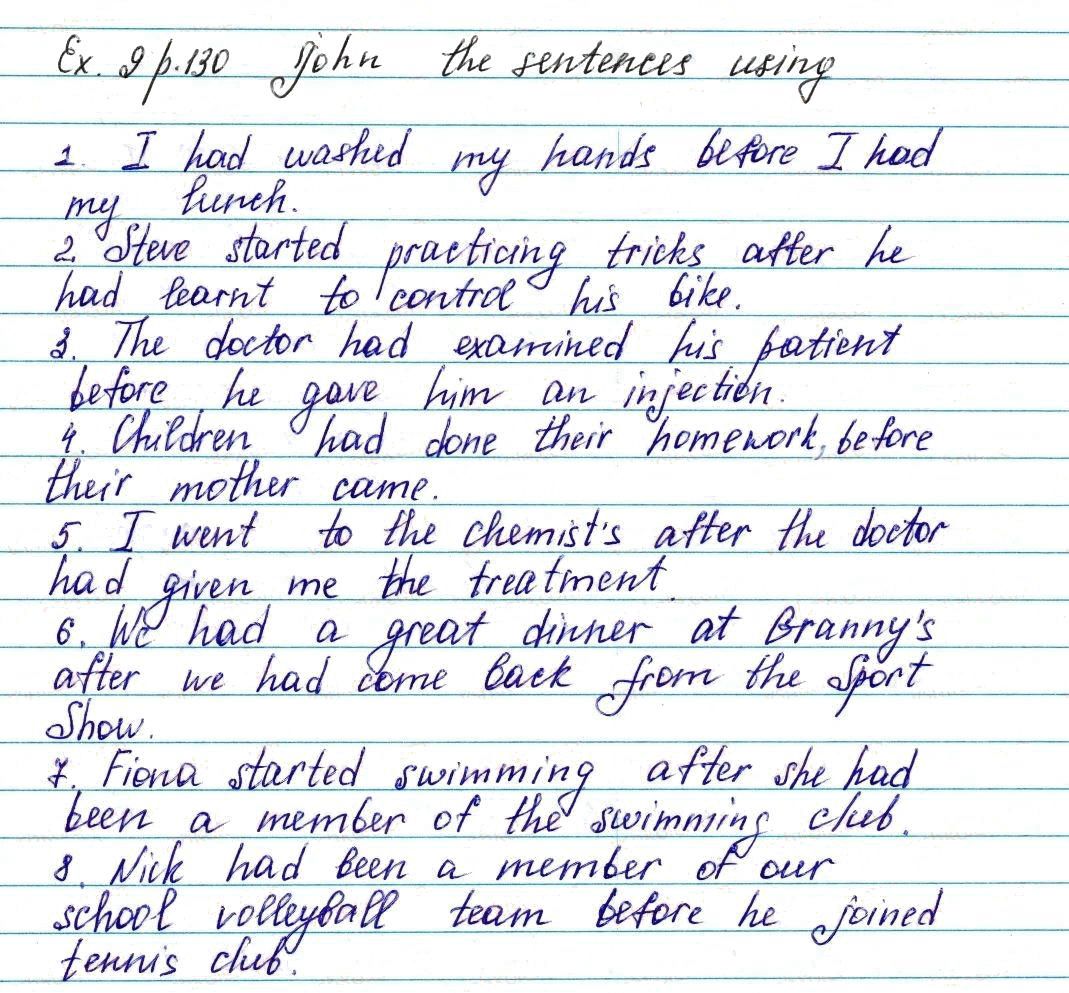 Ex. 9 p.130 John the sentences using
1. I had washed my hands before I had
my lunch.
2. Steve started practicing tricks after he
had learnt to control his bike.
3. The doctor had examined his patient
before he gave him an injection.
4. Children had done their homework, before
their mother came.
5. I went to the chemist's after the doctor
had given me the treatment.
6. We had a great dinner at Granny's
after we had come back from the Sport
Show.
7. Fiona started swimming after she had
been a member of the swimming club.
8. Nick had been a member of our
school volleyball team before he joined
tennis club.